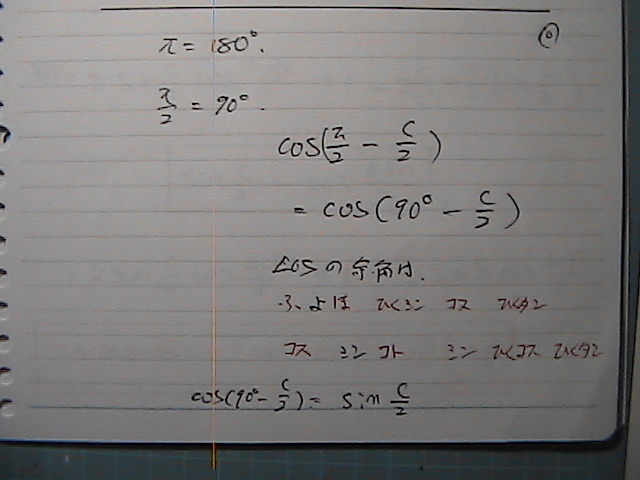 ⓪
π = 180°.
π/2 = 90°.
cos(π/2 - C/2)
= cos(90° - C/2)
cosの余角は.
ふ、よほ ひくシン コス ひくタン
コス シン コト シン ひくコス ひくタン
cos(90° - C/2) = sin C/2